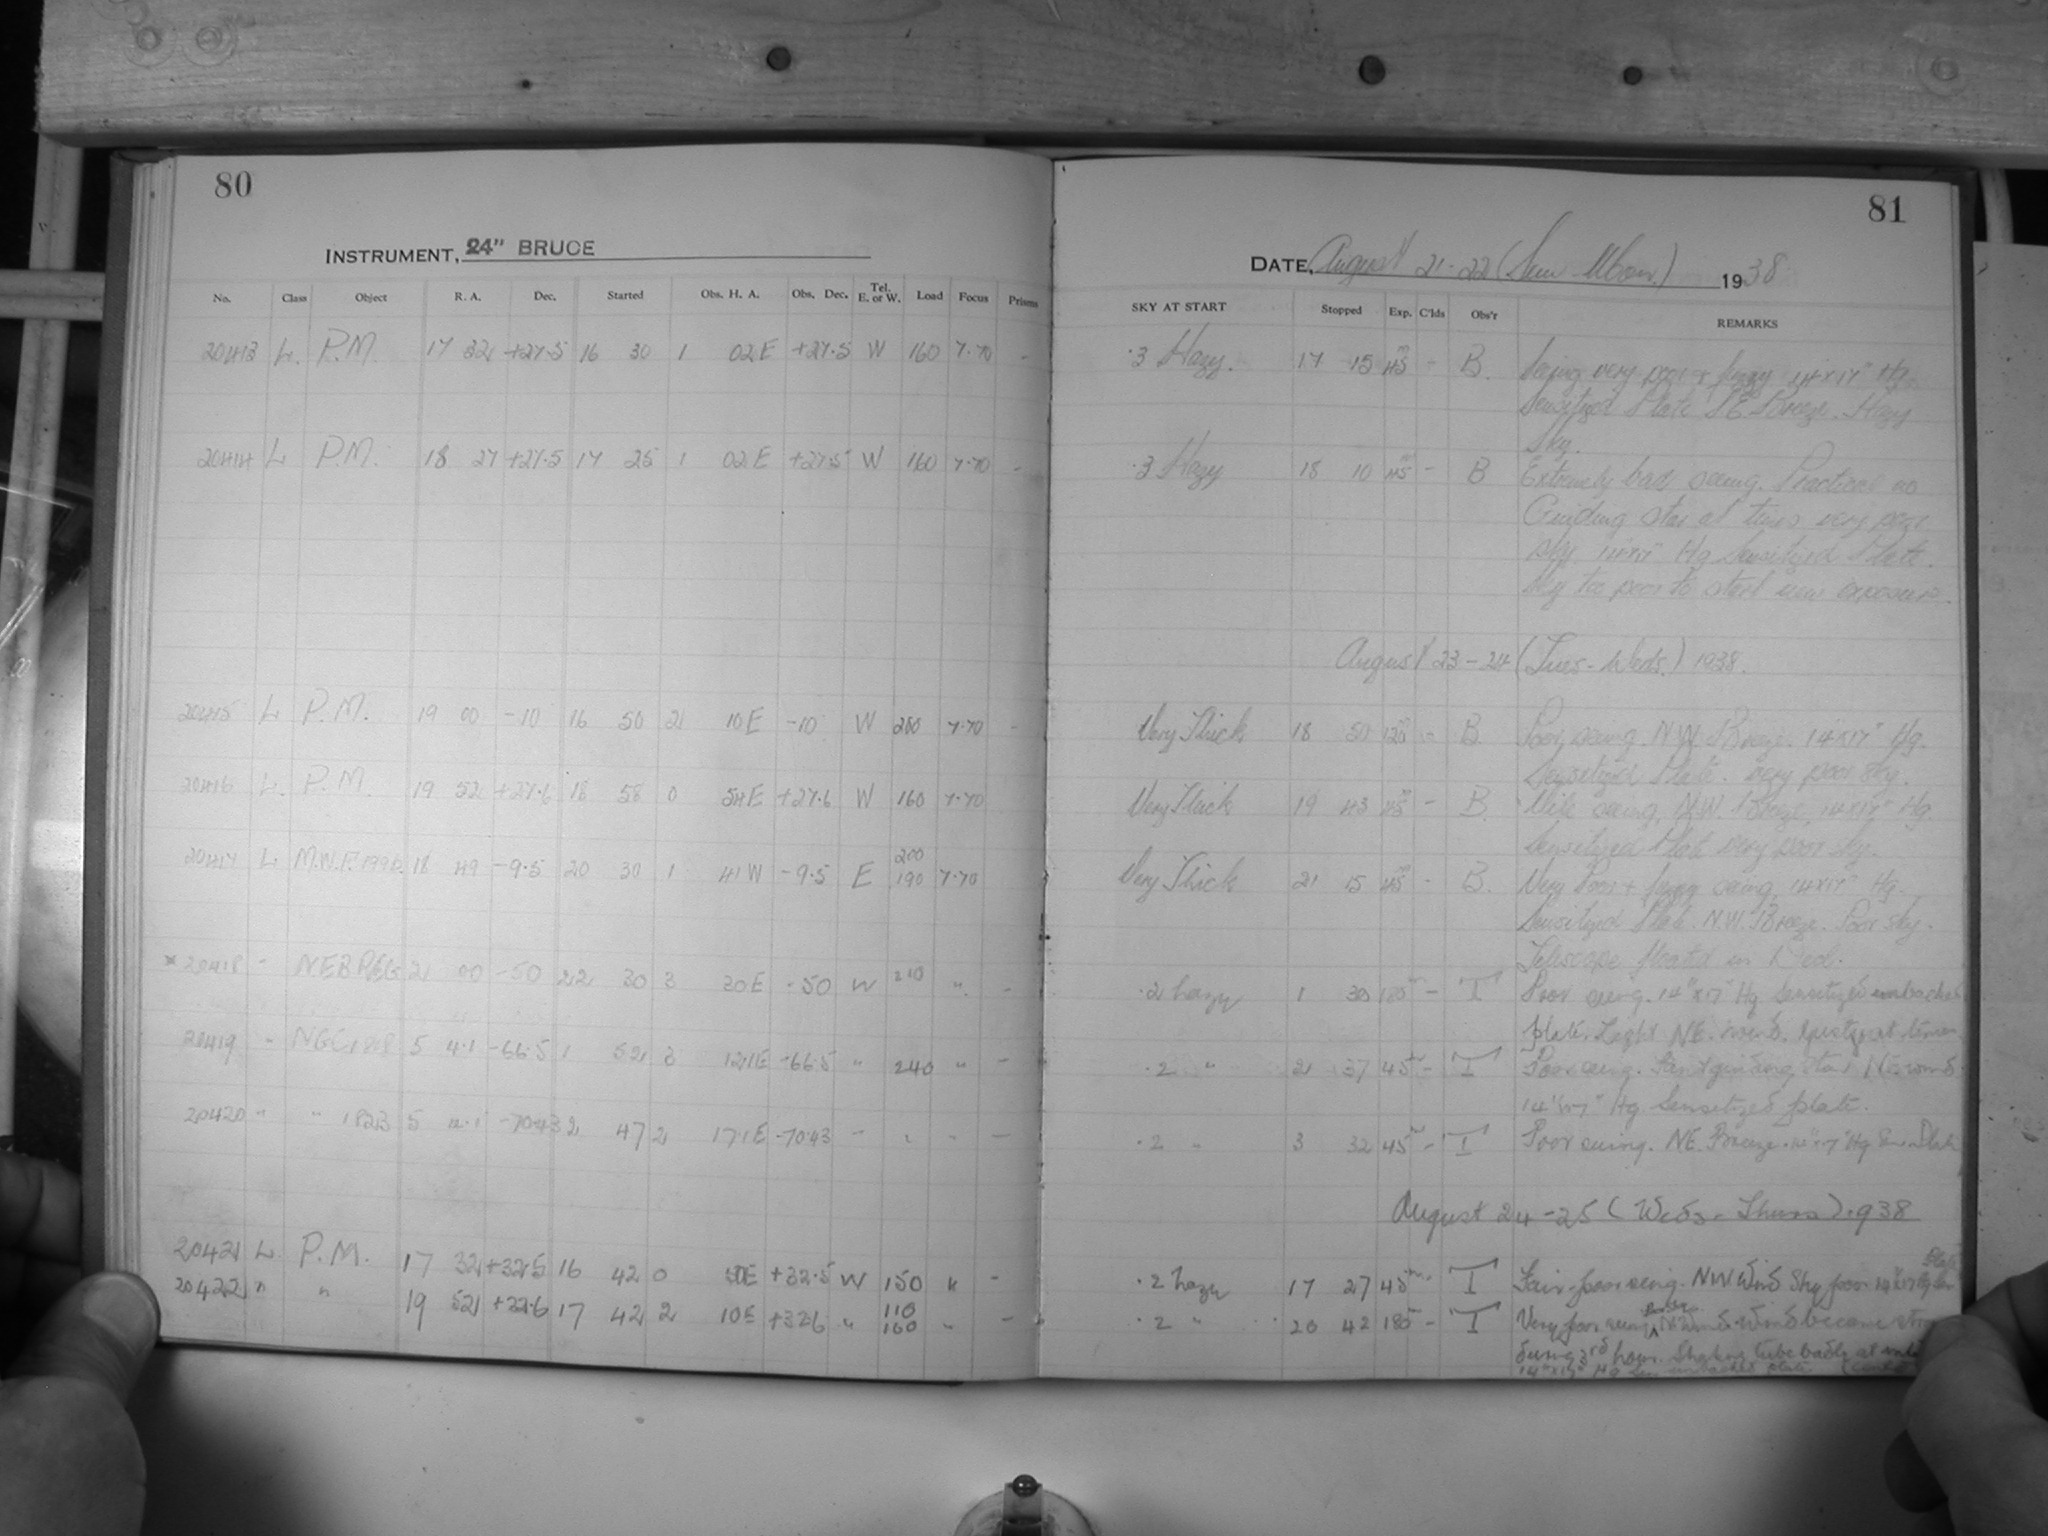 80
INSTRUMENT, 24" BRUCE
No. Class Object R. A. Dec. Started Obs. H. A. Obs. Dec. Tel. E. or W. Load Focus Prisms
20413 L. P.M. 17 32 +27.5 16 30 1 02 E +27.5 W 160 7.70 -
20414 L P.M. 18 27 +27.5 17 25 1 02 E +27.5 W 160 7.70 -
20415 L P.M. 19 00 -10 16 50 2 10 E -10 W 200 7.70 -
20416 L. P.M. 19 52 +27.6 18 58 0 54 E +27.6 W 160 7.70
20417 L M.W.F. 18 49 -9.5 20 30 1 41 W -9.5 E 200 190 7.70
* 20418 " 21 00 -50 22 30 3 30 E -50 W 210 " -
20419 " NGC 1818 5 4.1 -66.5 1 52 3 12.1 E -66.5 " 240 " -
20420 " " 5 -70.43 2 47 2 17.1 E -70.43 - " " -
20421 L P.M. 17 32 +32.5 16 42 0 50 E +32.5 W 150 " -
20422 " " 19 52 +32.6 17 42 2 10 E +32.6 " 110 160 " -
81
DATE, August 21-22 (Sun-Mon.) 1938
SKY AT START Stopped Exp. C'lds Obs'r REMARKS
.3 Hazy. 17 15 45m - B. Seeing very poor + fuzzy 14x17" Hg.
Sensitized Plate. Breeze. Hazy
Sky.
.3 Hazy 18 10 45m - B Extremely bad seeing. Practical no
Guiding star at times very poor
sky 14x17" Hg Sensitized Plate.
Sky too poor to start new exposure.
August 23-24 (Tues-Weds.) 1938.
Very Thick 18 50 120m - B Poor seeing. N.W. Breeze. 14x17" Hg.
Sensitized Plate. Very poor sky.
Very Thick 19 43 45m - B. seeing, N.W. Breeze, 14x17" Hg.
Sensitized Plate very poor sky.
Very Thick 21 15 45m - B. Very Poor + fuzzy seeing, 14x17" Hg.
Sensitized Plate. N.W. Breeze. Poor sky.
Telescope floated in Decl.
.2 hazy 1 30 180m - T Poor seeing. 14"x17" Hg Sensitized unbacked
plate. Light NE. wind. gusty at times
.2 " 2 37 45m - T Poor seeing. Faint guiding star NE wind.
14"x17" Hg. Sensitized plate.
.2 " 3 32 45m - T Poor seeing. NE. Breeze. 14"x17" Hg Plate
August 24-25 (Weds-Thurs) 1938
.2 hazy 17 27 45m - T Fair-poor seeing. NW Wind Sky poor 14"x17" Hg Plate
.2 " 20 42 180m - T Very poor seeing, Wind became
during 3rd hour. Shaking tube badly at
14"x17" Hg Sen unbacked plate